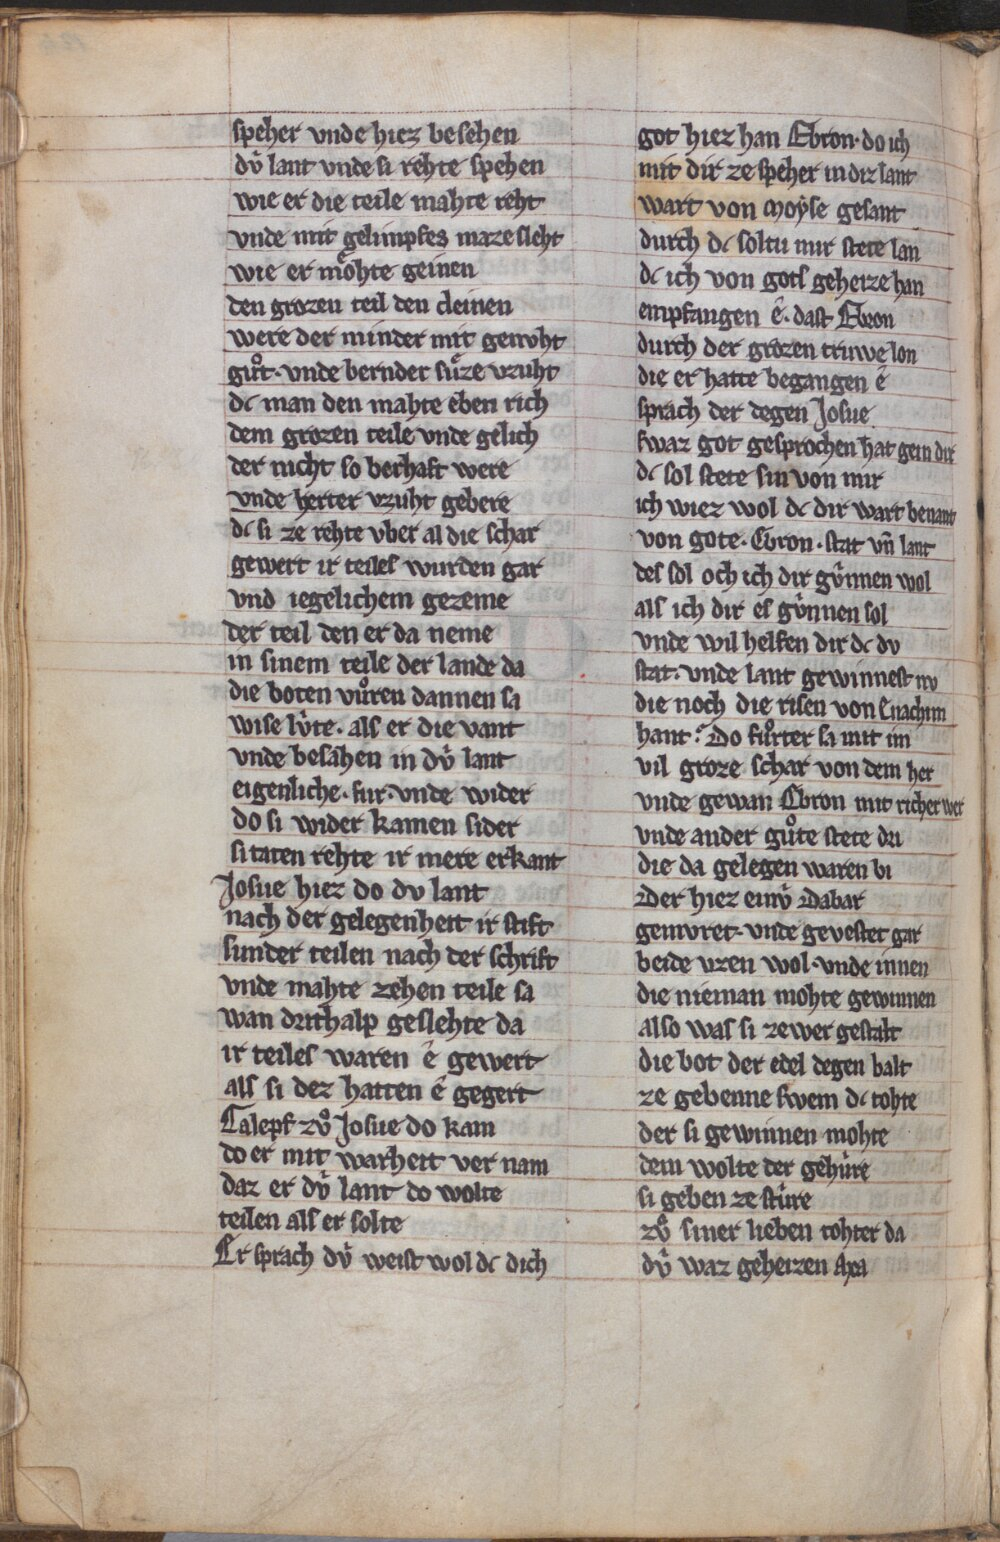 speher vnde hiez besehen
dv̂ lant vnde si rehte spehen
wie er die teile mahte reht
vnde mit gelimpfes maze sleht
wie er mo̊hte geinen
den grozen teil den cleinen
were der minder mit genvht
gůt· vnde bernder sůze vzuht
dc man den mahte eben rich
dem grozen teile vnde gelich
der nicht so berhaft were
vnde herter vzuht gebere
dc si ze rehte vber al die schar
gewert ir teiles wurden gar
vnd iegelichem gezeme
der teil den er da neme
in sinem teile der lande da
die boten vůren dannen sa
wise lv̂te· als er die vant
vnde besahen in dv̂ lant
eigenliche· fur vnde wider
do si wider kamen sider
si taten rehte ir mere erkant
Josue hiez do dv lant
nach der gelegenheit ir stift
sunder teilen nach der schrift
vnde mahte zehen teile sa
wan drithalp geslehte da
ir teiles waren ê gewert
als si dez hatten ê gegert
Calepf zv̊ Josue do kam
do er mit warheit ver nam
daz er dv̂ lant do wolte
teilen als er solte
Er sprach dv̂ weist wol dc dich
got hiez han Ebron· do ich
mit dir ze speher in diz lant
wart von Moẏse gesant
durch dc soltu mir stete lan
dc ich von gots geheize han
empfangen ê· dast Ebron
durch der grozen triuwe lon
die er hatte begangen ê
sprach der degen Josue
swaz got gesprochen hat gein dir
dc sol stete sin von mir
ich wiez wol dc dir wart benant
von gote· Ebron· stat vn̄ lant
des sol och ich dir gv̂nnen wol
als ich dir es gv̂nnen sol
vnde wil helfen dir dc dv
stat· vnde lant gewinnest nv
die noch die risen von Enachim
hant· Do fůrter sa mit im
vil groze schar von dem her
vnde gewan Ebron mit richer wer
vnde ander gůte stete dri
die da gelegen waren bi
Der hiez einv̂ Dabar
gemvret· vnde gevestet gar
beide vzen wol· vnde innen
die nieman mohte gewinnen
also was si ze wer gestalt
die bot der edel degen balt
ze gebenne swem dc tohte
der si gewinnen mohte
dem wolte der gehûre
si geben ze stûre
zv̊ siner lieben tohter da
dv̂ waz geheizen Axa